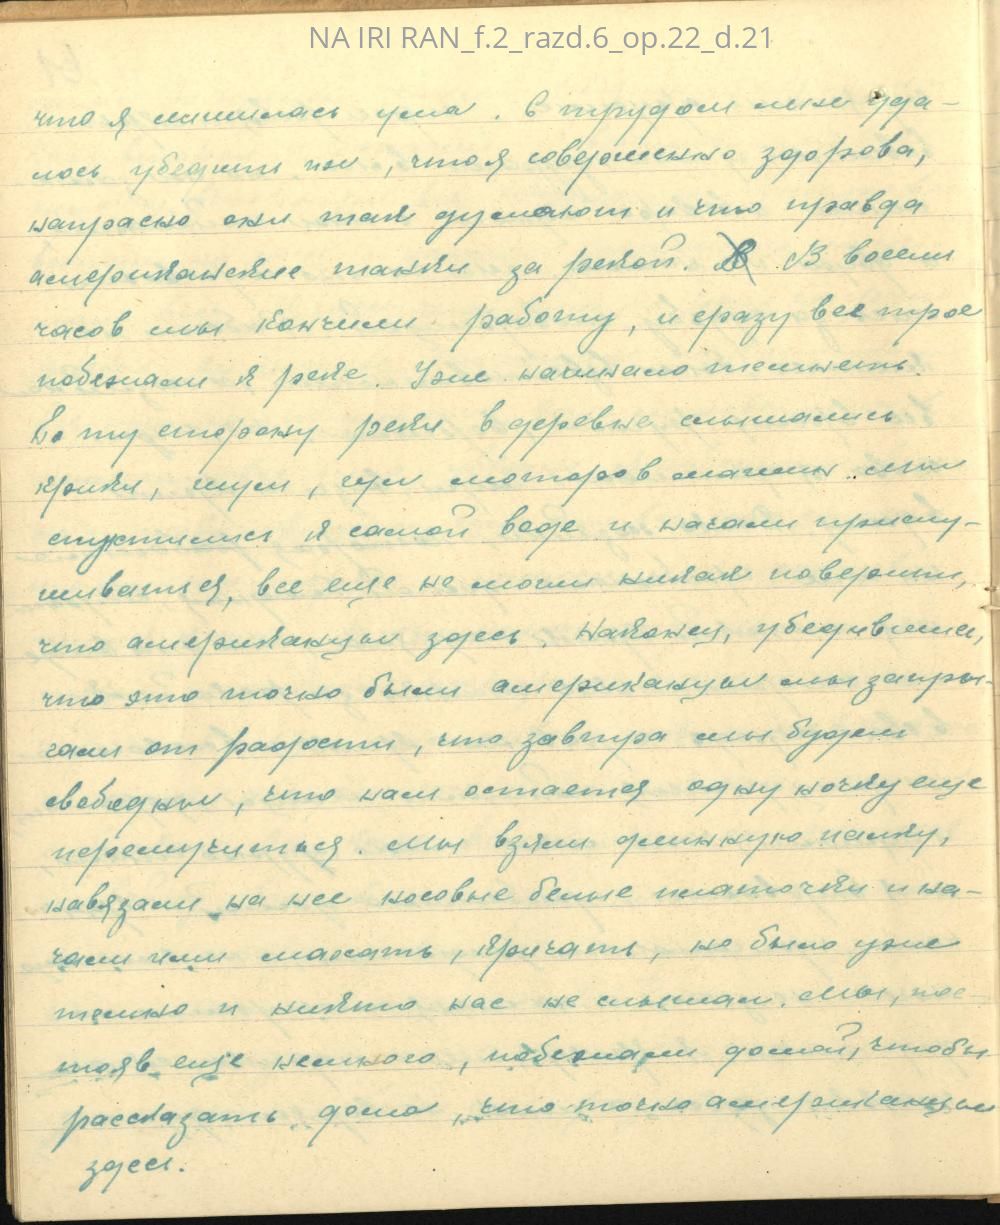 NA IRI RAN_f.2_razd.6_op.22_d.21
что я лишилась ума. С трудом мне уда-
лось убедить их, что я совершенно здорова,
напрасно они так думают и что правда
американские танки за рекой. В восемь
часов мы кончили работу, и сразу все трое
побежали к реке. Уже начинало темнеть.
По ту сторону реки в деревне слышались
крики, шум, гул моторов машин. Мы
спустились к самой воде и начали прислу-
шиваться, все еще не могли никак поверить,
что американцы здесь. Наконец, убедившись,
что это точно были американцы мы запры-
гали от радости, что завтра мы будем
свободны, что нам остается одну ночку еще
перемучиться. Мы взяли длинную палку,
навязали на нее носовые белые платочки и на-
чали ими махать, кричать, но было уже
темно и никто нас не слышал. Мы, пос-
тояв еще немного, побежали домой, чтобы
рассказать дома, что точно американцы
здесь.